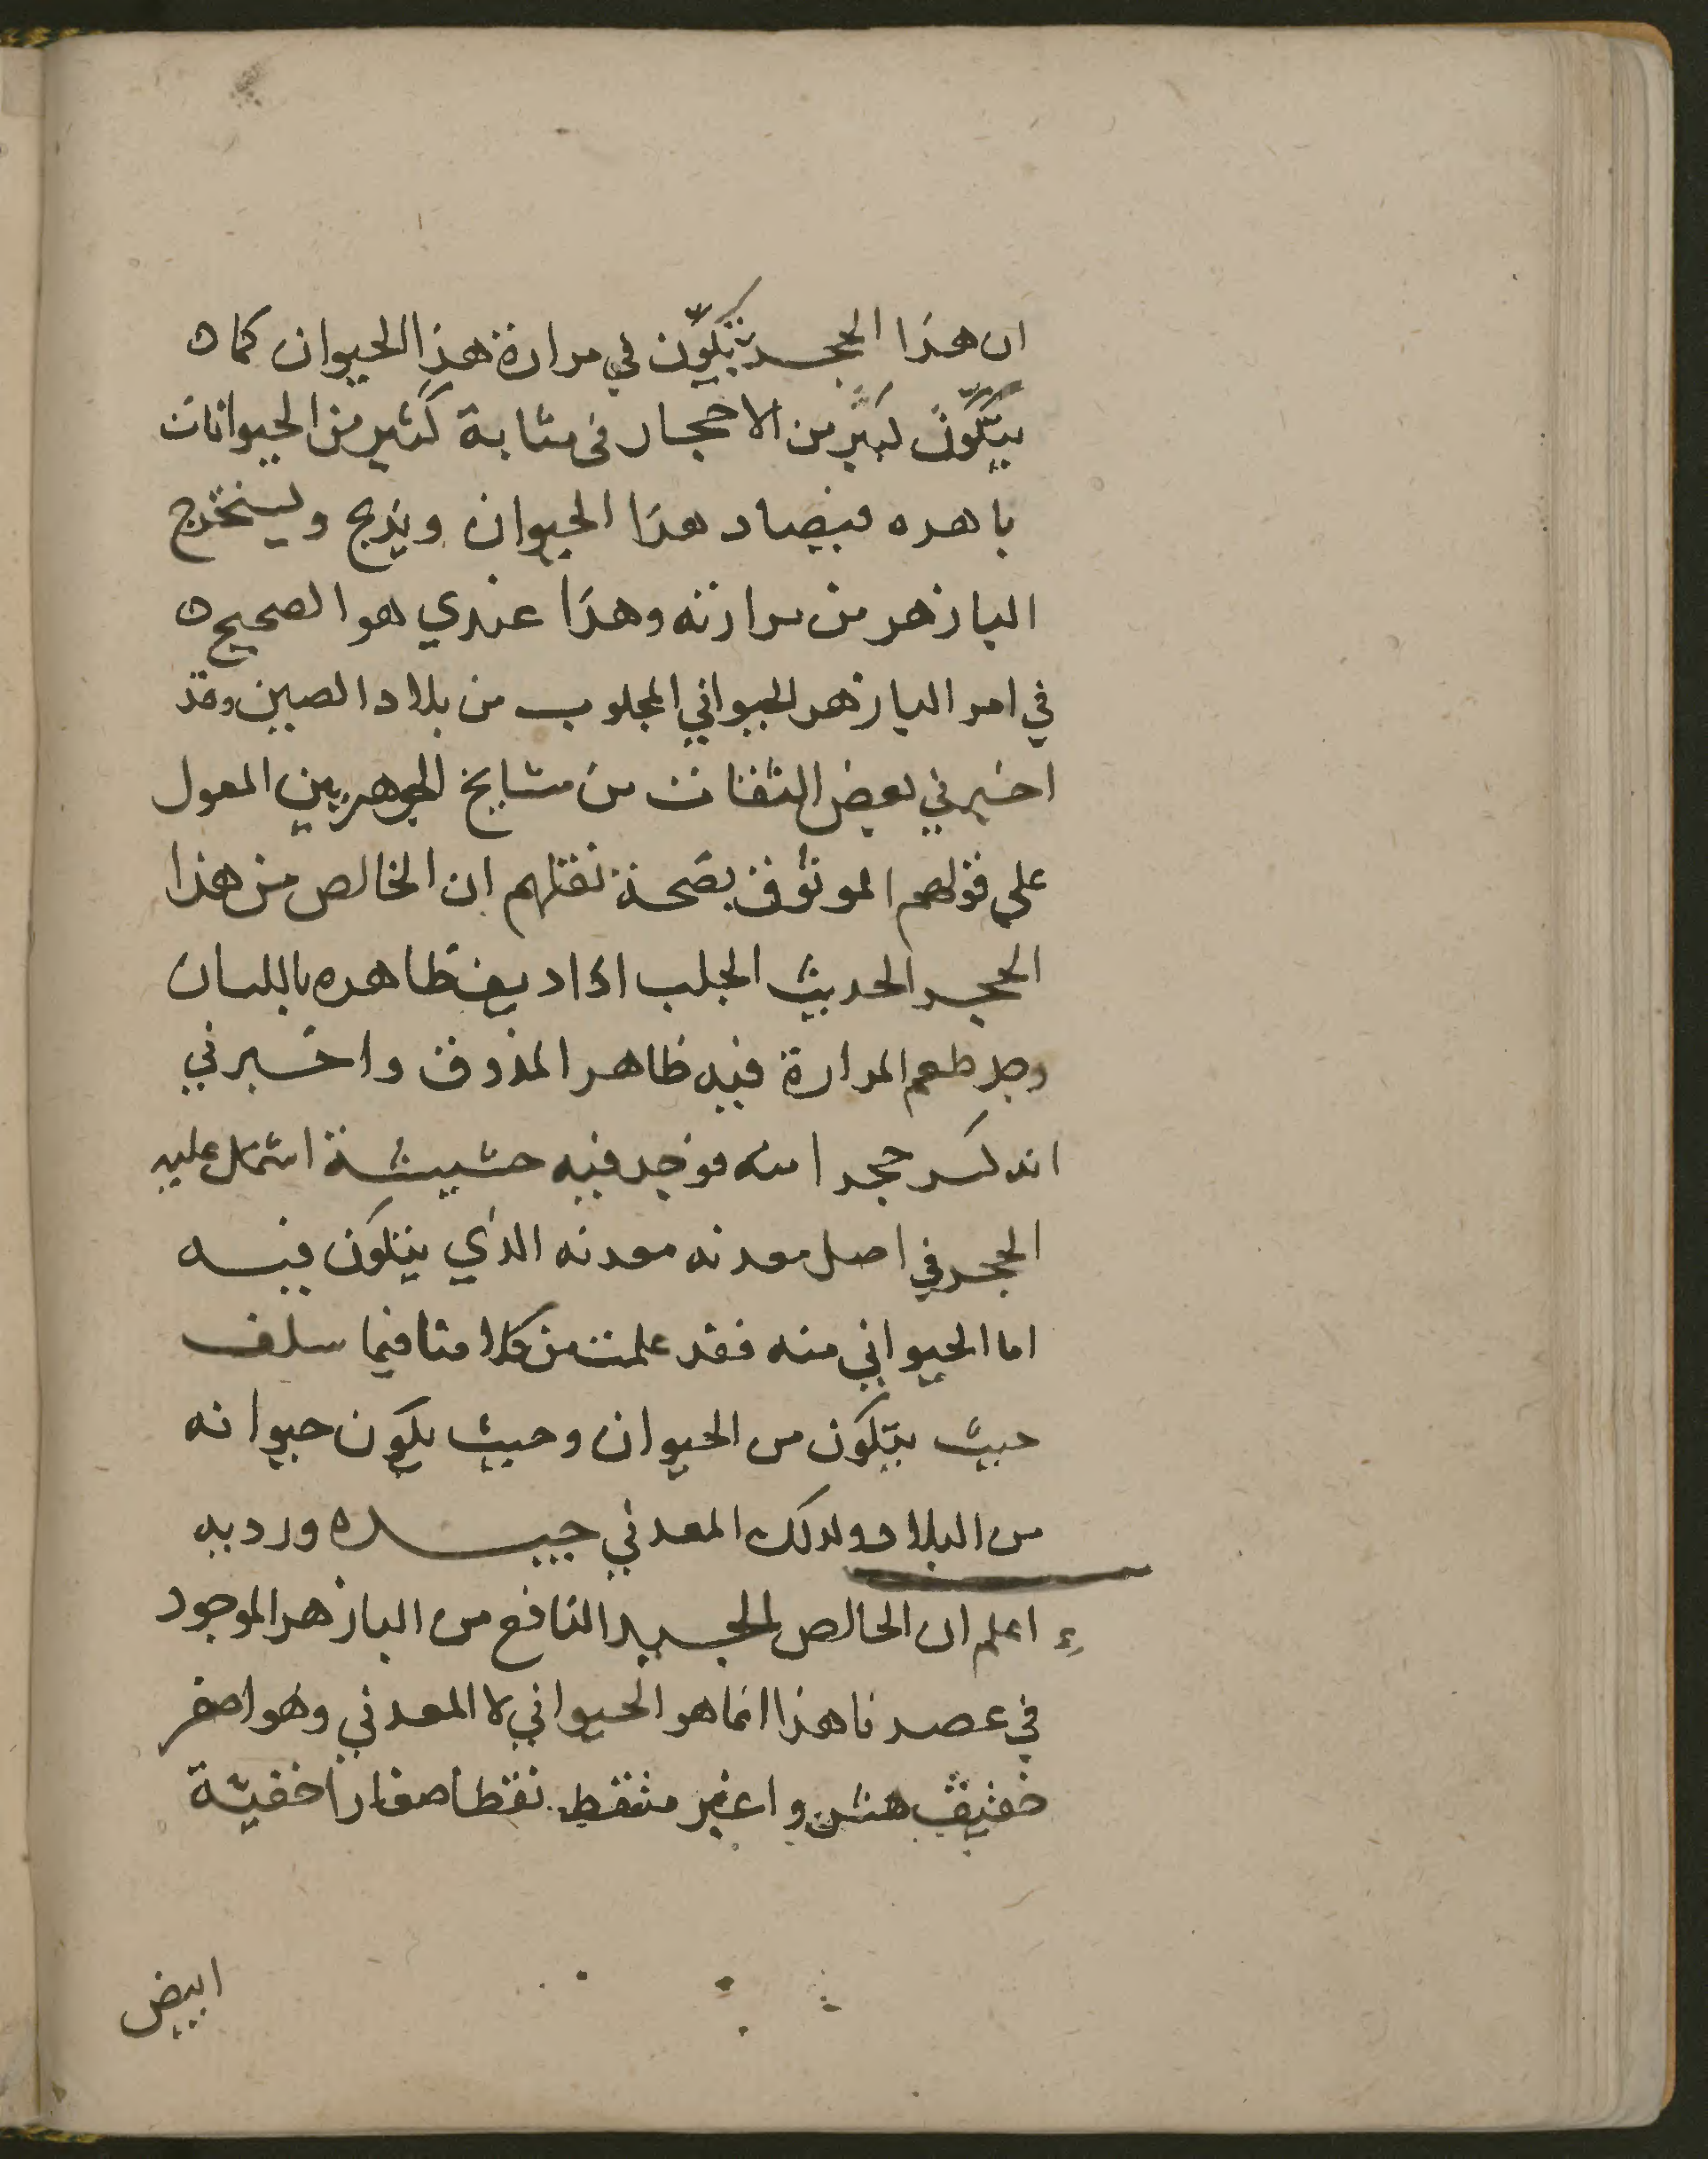 ان هذا الحجر يتكوّن في مرارة هذا الحيوان كما ه
يتكوّن كثير من الاحجار في مثابة كثير من الحيوانات
باهره فيصاد هذا الحيوان ويذبح ويستخرج
البازهر من مرارته وهذا عندي هو الصحيح ه
في امر البازهر الحيواني المجلوب من بلاد الصين وقد
اخبرني بعض الثقات من مشايخ الجوهريين المعول
على قولهم الموثوق بصحة نقلهم ان الخالص من هذا
الحجر الحديث الجلب اذا ديف ظاهره باللسان
وجد طعم المرارة فيه ظاهر المذوق واخبرني
انه كسر حجرا منه فوجد فيه حشيشة اشتمل عليه
الحجر في اصل معدنه معدنه الذي يتكون فيه
اما الحيواني منه فقد علمت من كلامنا فيما سلف
حيث يتكون من الحيوان وحيث يكون حيوانه
من البلاد ولذلك المعدني جيده ورديه
اعلم ان الخالص الجيد النافع من البازهر الموجود
في عصرنا هذا انما هو الحيواني لا المعدني وهو اصفر
خفيف هش واغبر منقط نقطا صغارا خفيّة
ابيض